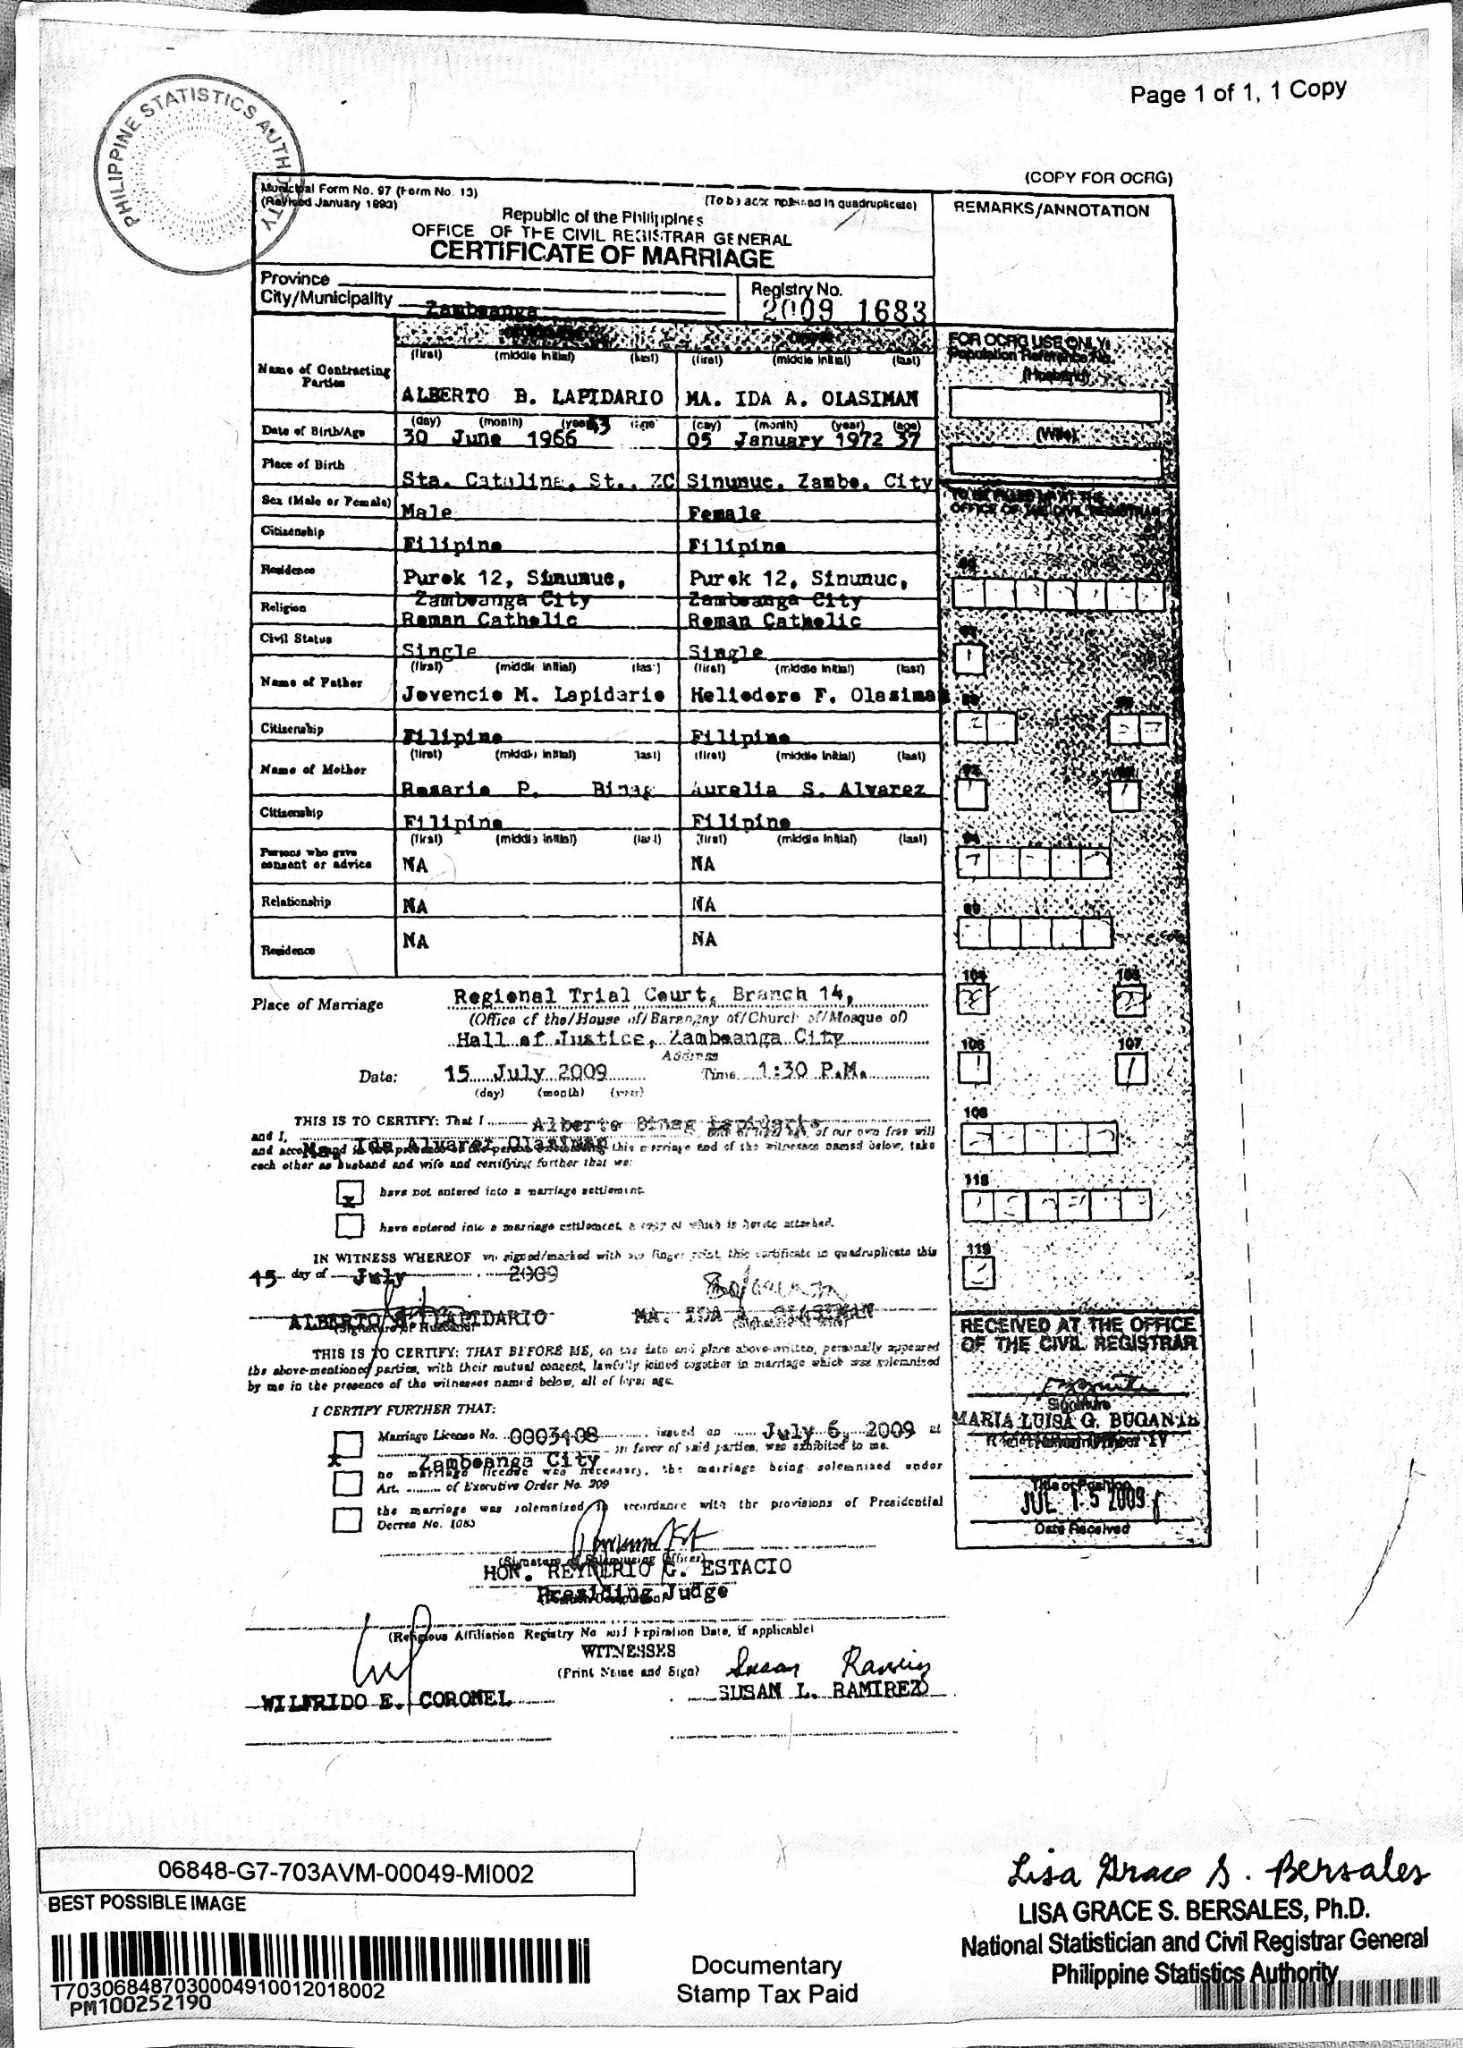 Page 1 of 1, 1 Copy
PHILIPPINE STATISTICS AUTHORITY
(COPY FOR OCRG)
Municipal Form No. 97 (Form No. 13)
(Revised January 1993)
Republic of the Philippines
OFFICE OF THE CIVIL REGISTRAR GENERAL
CERTIFICATE OF MARRIAGE
REMARKS/ANNOTATION
Province
City/Municipality Zamboanga
Registry No.
2009 1683
FOR OCRG USE ONLY:
Population Reference No.
(Husband)
(Wife)
(first) (middle initial) (last) (first) (middle initial) (last)
Name of Contracting Parties
ALBERTO B. LAPIDARIO MA. IDA A. OLASIMAN
(day) (month) (year) (day) (month) (year) (age)
Date of Birth/Age 30 June 1966 43 05 January 1972 37
Place of Birth Sta. Catalina, St., ZC Sinunuc, Zambo. City
Sex (Male or Female) Male Female
Citizenship Filipino Filipino
Residence Purok 12, Sinunuc, Zamboanga City Purok 12, Sinunuc, Zamboanga City
Religion Roman Catholic Roman Catholic
Civil Status Single Single
(first) (middle initial) (last) (first) (middle initial) (last)
Name of Father Jovencio M. Lapidario Heliodoro F. Olasiman
Citizenship Filipino Filipino
(first) (middle initial) (last) (first) (middle initial) (last)
Name of Mother Rosario P. Binag Aurelia S. Alvarez
Citizenship Filipino Filipino
(first) (middle initial) (last) (first) (middle initial) (last)
Persons who gave consent or advice NA NA
Relationship NA NA
Residence NA NA
Place of Marriage Regional Trial Court, Branch 14,
(Office of the/House of/Barangay of/Church of/Mosque of)
Hall of Justice, Zamboanga City
Address
Date: 15 July 2009 Time 1:30 P.M.
(day) (month) (year)
THIS IS TO CERTIFY: That I Alberto Binag Lapidario
and I, Ma. Ida Alvarez Olasiman of our own free will
this marriage and of the witnesses named below, take
each other as husband and wife and certifying further that we:
x have not entered into a marriage settlement.
have entered into a marriage settlement, a copy of which is hereto attached.
IN WITNESS WHEREOF we signed/marked with our finger print, this certificate in quadruplicate this
15 day of July 2009
ALBERTO B. LAPIDARIO MA. IDA A. OLASIMAN
(Signature of Husband)
THIS IS TO CERTIFY: THAT BEFORE ME, on the date and place above-written, personally appeared
the above-mentioned parties, with their mutual consent, lawfully joined together in marriage which was solemnized
by me in the presence of the witnesses named below, all of legal age.
I CERTIFY FURTHER THAT:
x Marriage License No. 0003408 issued on July 6, 2009 at
Zamboanga City in favor of said parties, was exhibited to me.
no marriage license was necessary, the marriage being solemnized under
Art. of Executive Order No. 209
the marriage was solemnized in accordance with the provisions of Presidential
Decree No. 1083
(Signature of Solemnizing Officer)
HON. REYNERIO G. ESTACIO
Presiding Judge
(Religious Affiliation Registry No and Expiration Date, if applicable)
WITNESSES
(Print Name and Sign)
Susan Ramirez
WILFRIDO E. CORONEL SUSAN L. RAMIREZ
TO BE FILLED UP AT THE
OFFICE OF THE CIVIL REGISTRAR
104
106 107
108
118
119
RECEIVED AT THE OFFICE
OF THE CIVIL REGISTRAR
Signature
MARIA LUISA G. BUGANTE
Title or Position
JUL 15 2009
Date Received
06848-G7-703AVM-00049-MI002
BEST POSSIBLE IMAGE
T703068487030004910012018002
PM100252190
Documentary
Stamp Tax Paid
Lisa Grace S. Bersales
LISA GRACE S. BERSALES, Ph.D.
National Statistician and Civil Registrar General
Philippine Statistics Authority